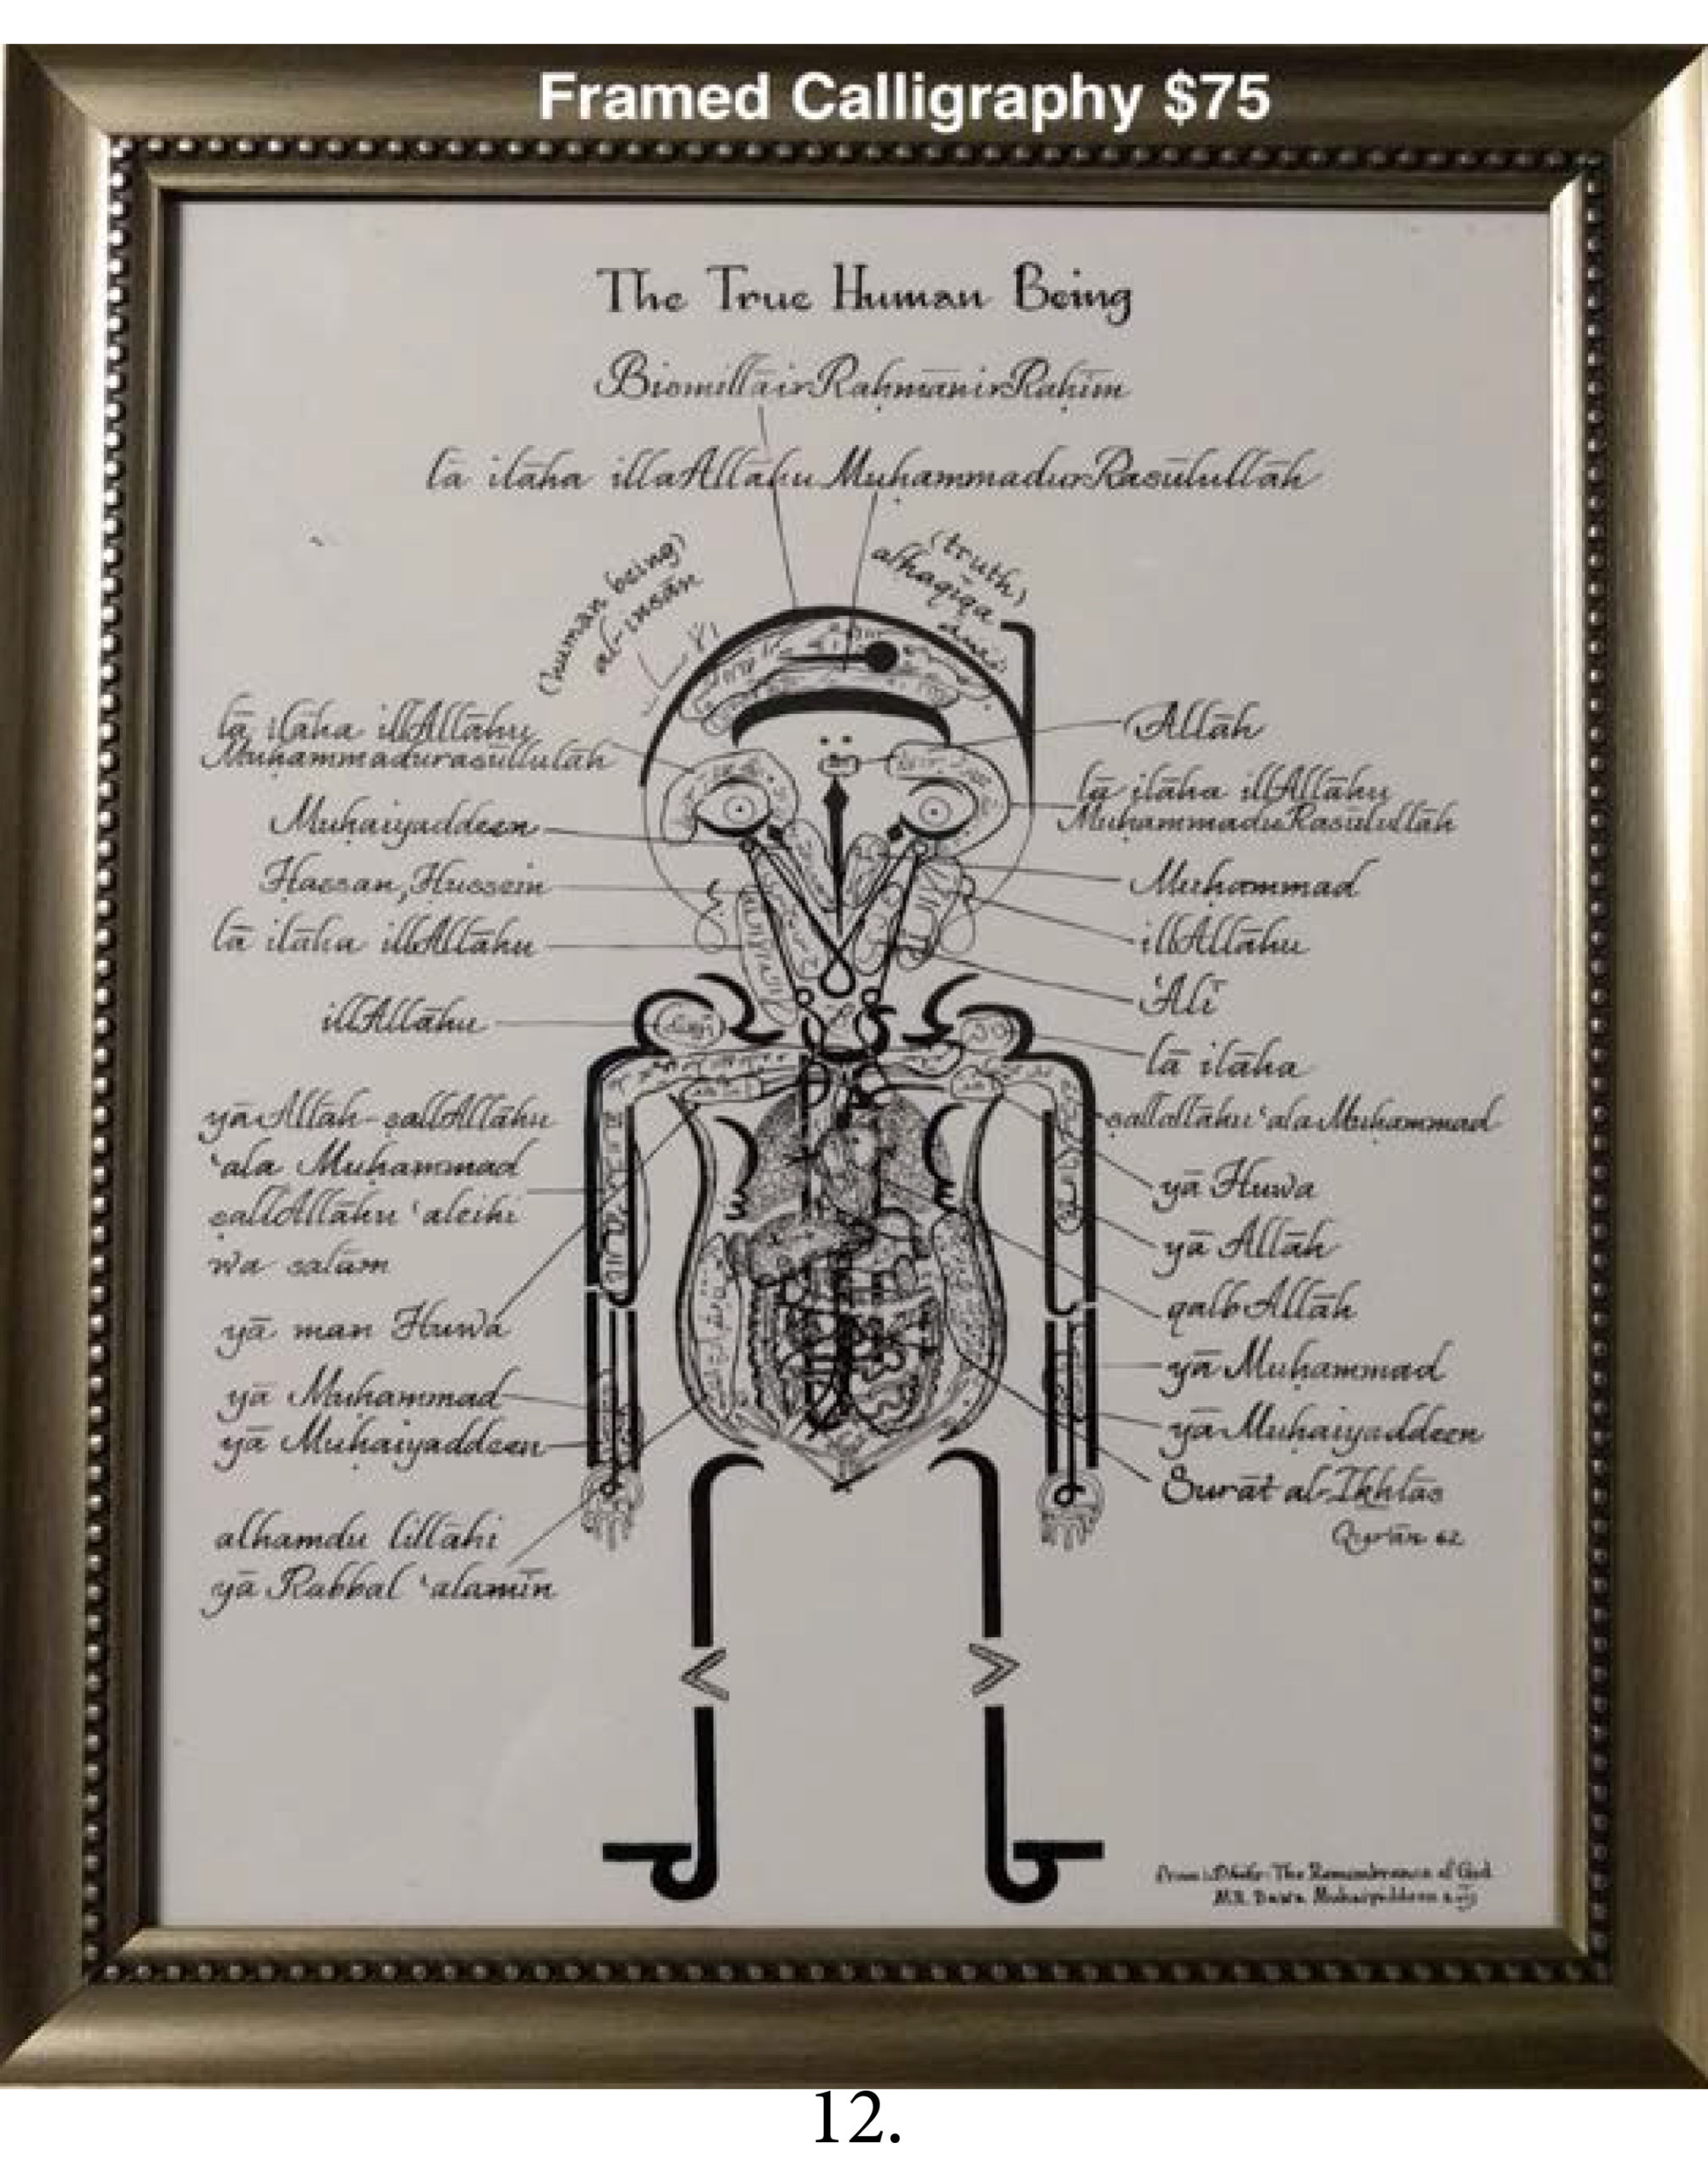 Framed Calligraphy $75
The True Human Being
BismillāirRaḥmānirRaḥīm
lā ilāha illaAllāhu MuḥammadurRasūlullāh
(human being)
al-insān
(truth)
alhaqīqa
lā ilāha illAllāhu
Muḥammadurasūllulāh
Muḥaiyaddeen
Hassan, Hussein
lā ilāha illAllāhu
illAllāhu
yā Allāh - ṣallAllāhu
'ala Muḥammad
ṣallAllāhu 'aleihi
wa salām
yā man Huwa
yā Muḥammad
yā Muḥaiyaddeen
alhamdu lillāhi
yā Rabbal 'alamīn
Allāh
lā ilāha illAllāhu
MuḥammaduRasūlullāh
Muḥammad
illAllāhu
'Alī
lā ilāha
ṣallallāhu 'ala Muḥammad
yā Huwa
yā Allāh
qalb Allāh
yā Muḥammad
yā Muḥaiyaddeen
Surāt al-Ikhlās
Qur'ān 62
from: Dhikr: The Remembrance of God
M.R. Bawa Muhaiyaddeen
12.